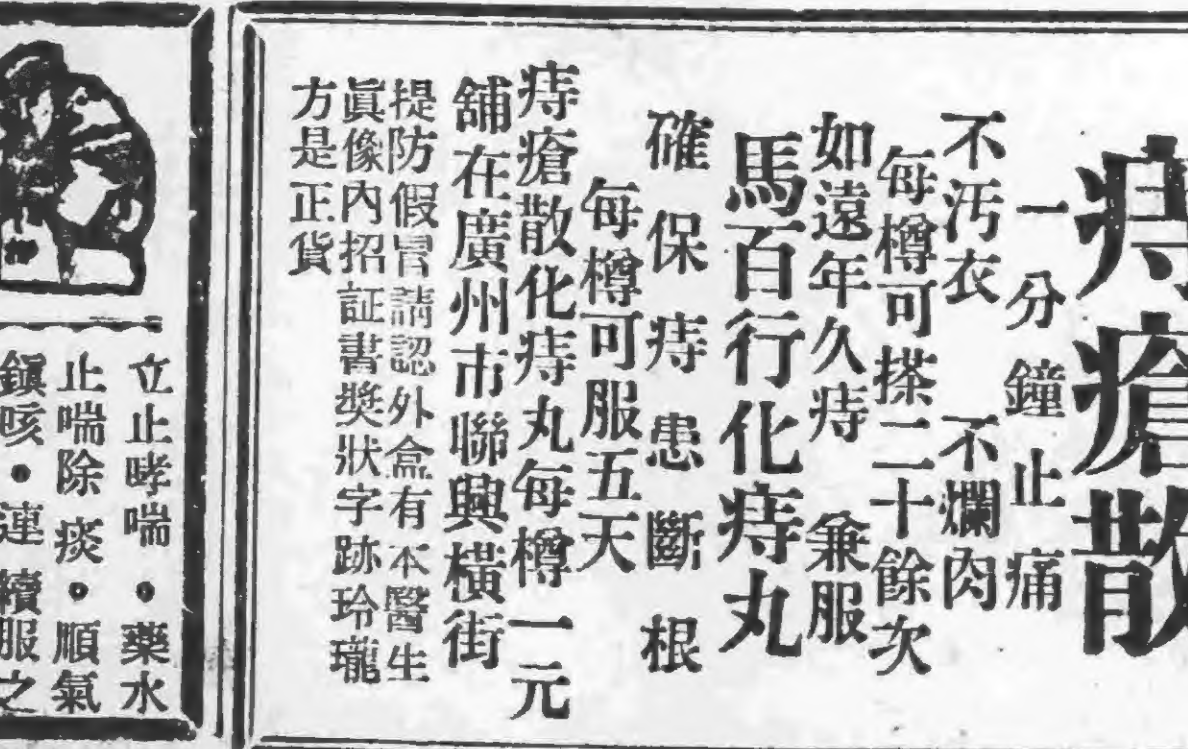 痔瘡散
一分鐘止痛
不汚衣 不爛肉
每樽可搽二十餘次
如遠年久痔 兼服
馬百行化痔丸
確保痔患斷根
每樽可服五天
痔瘡散化痔丸每樽一元
舖在廣州市聯興橫街
提防假冒請認外盒有本醫生
眞像內招証書獎狀字跡玲瓏
方是正貨
立止哮喘。藥水
止喘除痰。順氣
鎭咳。連續服之